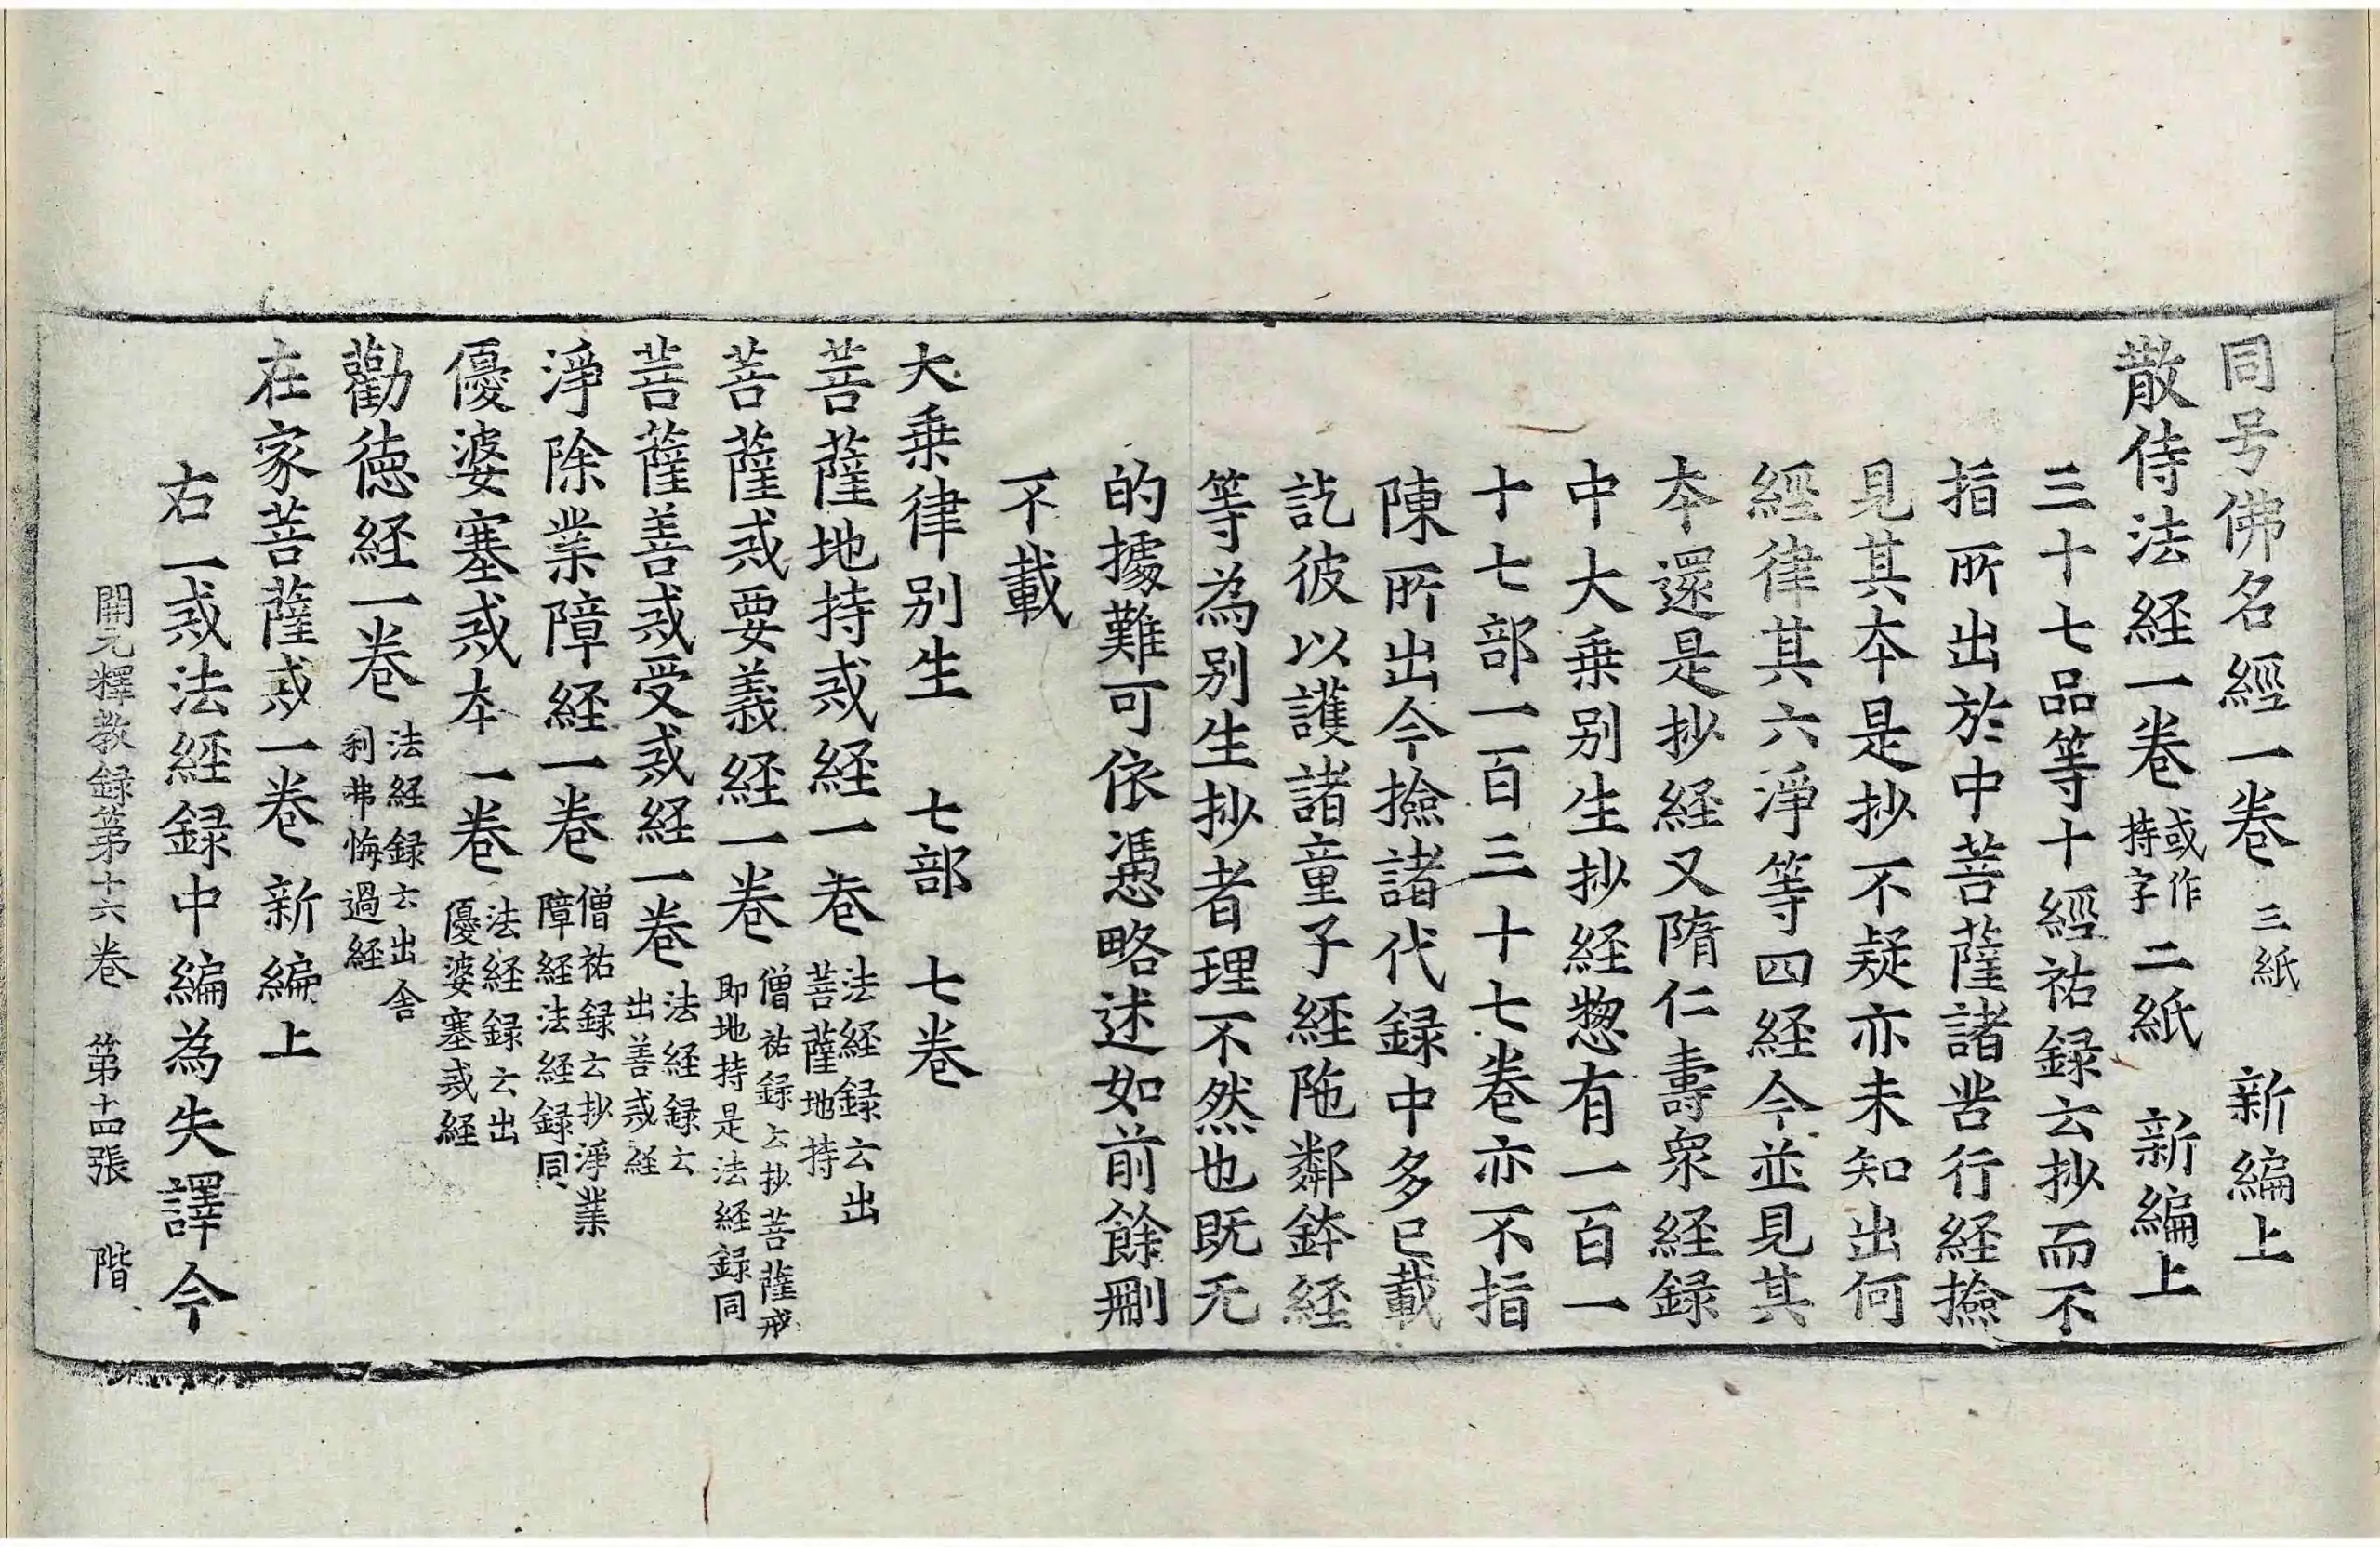 同号佛名經一卷 三紙 新編上
散侍法経一卷 或作持字 二紙 新編上
三十七品等十經祐録云抄而不
指所出於中菩薩諸苦行経撿
見其夲是抄不疑亦未知出何
經律其六淨等四経今並見其
夲還是抄経又隋仁壽衆経録
中大乗别生抄経惣有一百一
十七部一百三十七卷亦不指
陳所出今撿諸代録中多已載
訖彼以護諸童子經陁鄰鉢経
等為别生抄者理不然也既无
的據難可依憑略述如前餘刪
不載
大乗律别生 七部 七卷
菩薩地持戒経一卷 法経録云出菩薩地持
菩薩戒要義経一卷 僧祐録云抄菩薩戒即地持是法経録同
菩薩善戒受戒経一卷 法経録云出善戒経
淨除業障経一卷 僧祐録云抄淨業障経法経録同
優婆塞戒夲一卷 法経録云出優婆塞戒経
勸徳経一卷 法経録云出舎利弗悔過経
在家菩薩戒一卷 新編上
右一戒法経録中編為失譯今
開元釋教録第十六卷 第十四張 階